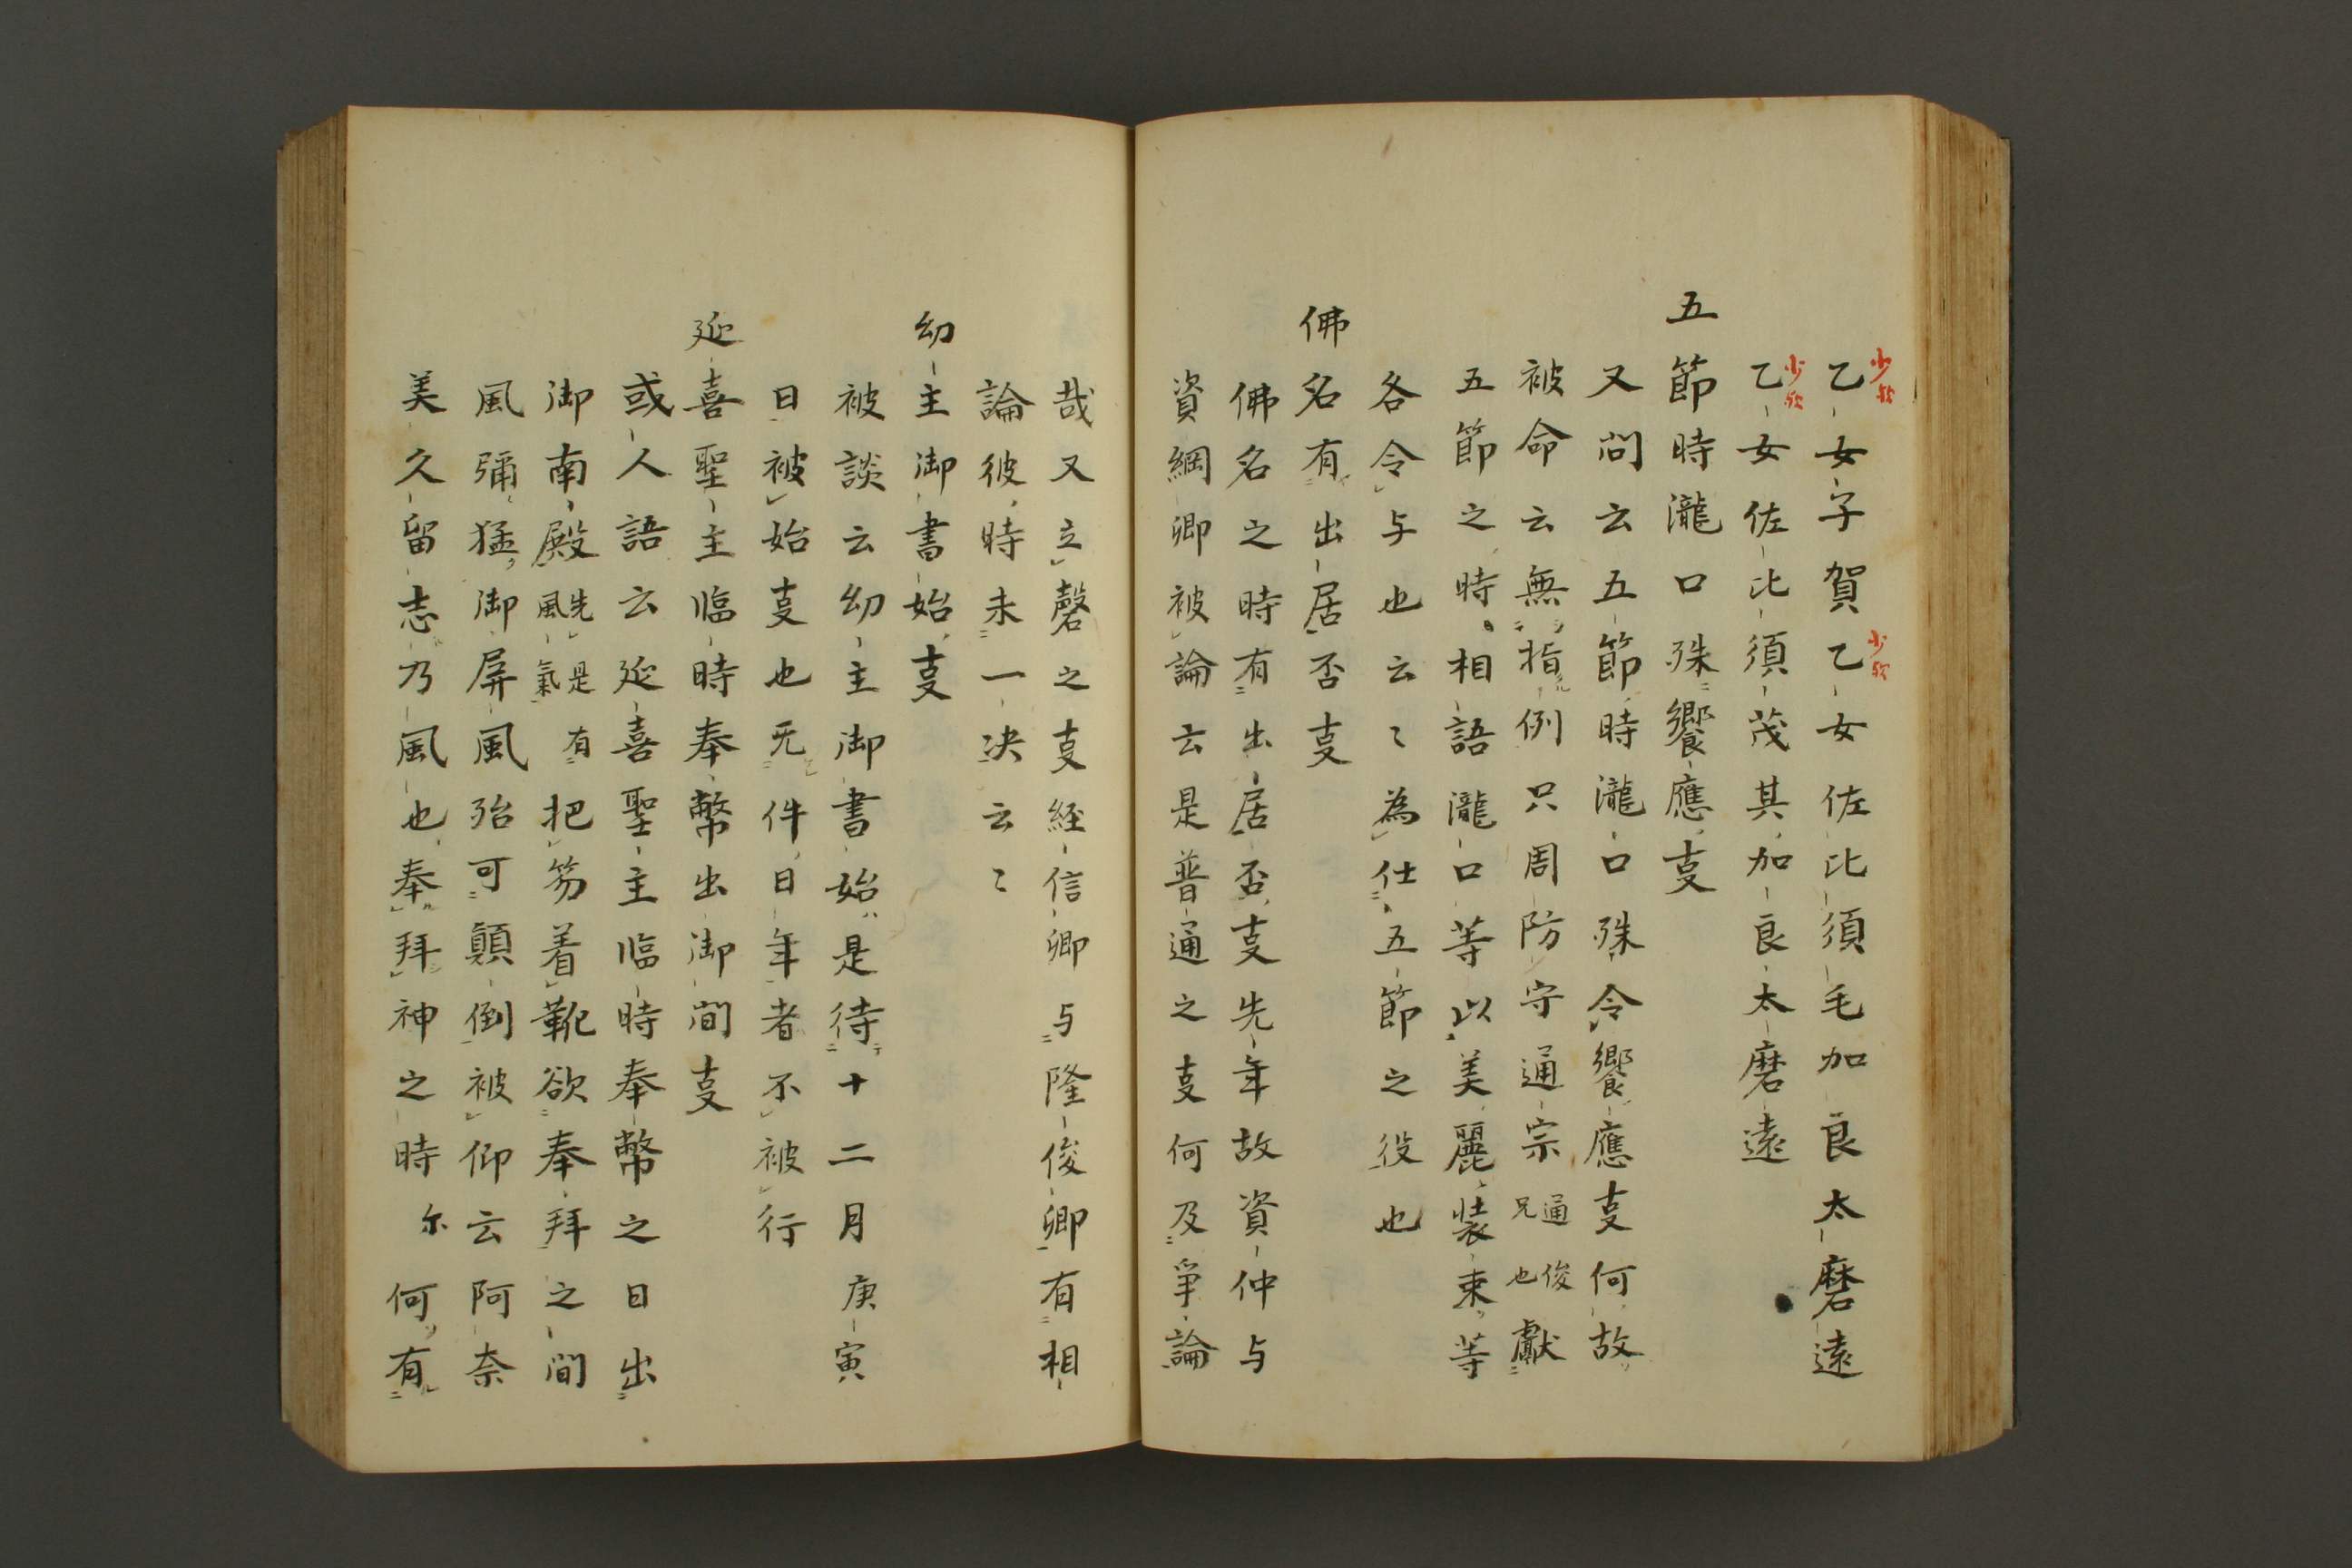 乙女子賀乙女佐比須毛加良太磨遠
乙女佐比須茂其加良太磨遠
五節時瀧口殊饗應㕝
又问云五節時瀧口殊令饗應㕝何故
被命云無指例只周防守通宗通俊兄也獻
五節之時相語瀧口等以美麗装束等
各令与也云〻為仕五節之役也
佛名有出居否㕝
佛名之時有出居否㕝先年故資仲与
資綱卿被論云是普通之㕝何及爭論
哉又立磬之㕝経信卿与隆俊卿有相
論彼時未一决云〻
幼主御書始㕝
被談云幼主御書始是待十二月庚寅
日被始㕝也无件日年者不被行
延喜聖主临時奉幣出御间㕝
或人語云延喜聖主临時奉幣之日出
御南殿先是有風氣把笏着靴欲奉拜之间
風彌猛御屏風殆可顛倒被仰云阿奈
美久留志乃風也奉拜神之時尓何有